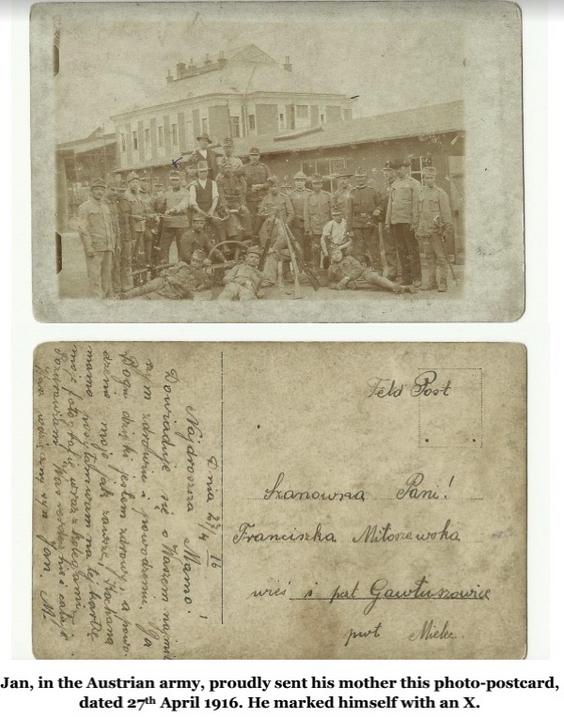 Dnia 27/4 16
Najdroższa Mamo!
Dowiaduje się o Waszem
zdrowiu i powodzeniu. Ja
Bogu dzięki jestem zdrowy, a powo-
dzenie moje jak zawsze! Kochana
mamo na tej kartce
moje foto wraz z kolegami.
Pozdrawiam Was i całuję
syn Jan. M.
Feld Post
Szanowna Pani!
Franciszka Miłoszewska
wieś i Gawłuszowice
pwt Mielec.
Jan, in the Austrian army, proudly sent his mother this photo-postcard,
dated 27th April 1916. He marked himself with an X.